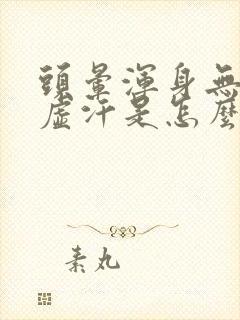 頭暈渾身無
虛汗是怎麼
素丸